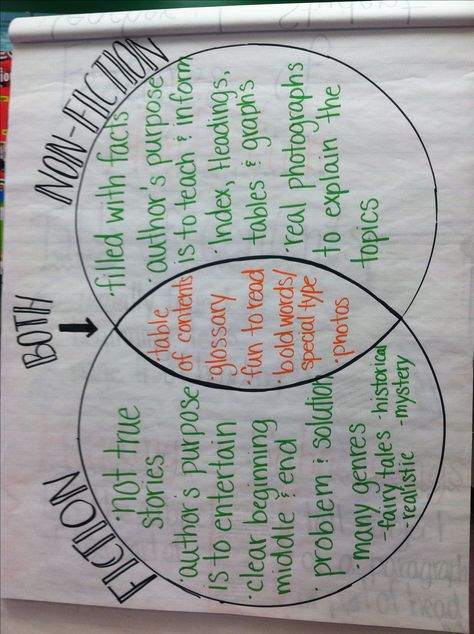 FICTION
BOTH
NON-FICTION
· not true
stories
· author's purpose
is to entertain
· clear beginning
middle & end
· problem & solution
· many genres
- fairy tales - historical
- realistic - mystery
· table
of contents
· glossary
· fun to read
· bold words/
special type
· photos
· filled with facts
· author's purpose
is to teach & inform
· Index, Headings,
tables & graphs
· real photographs
to explain the
topics